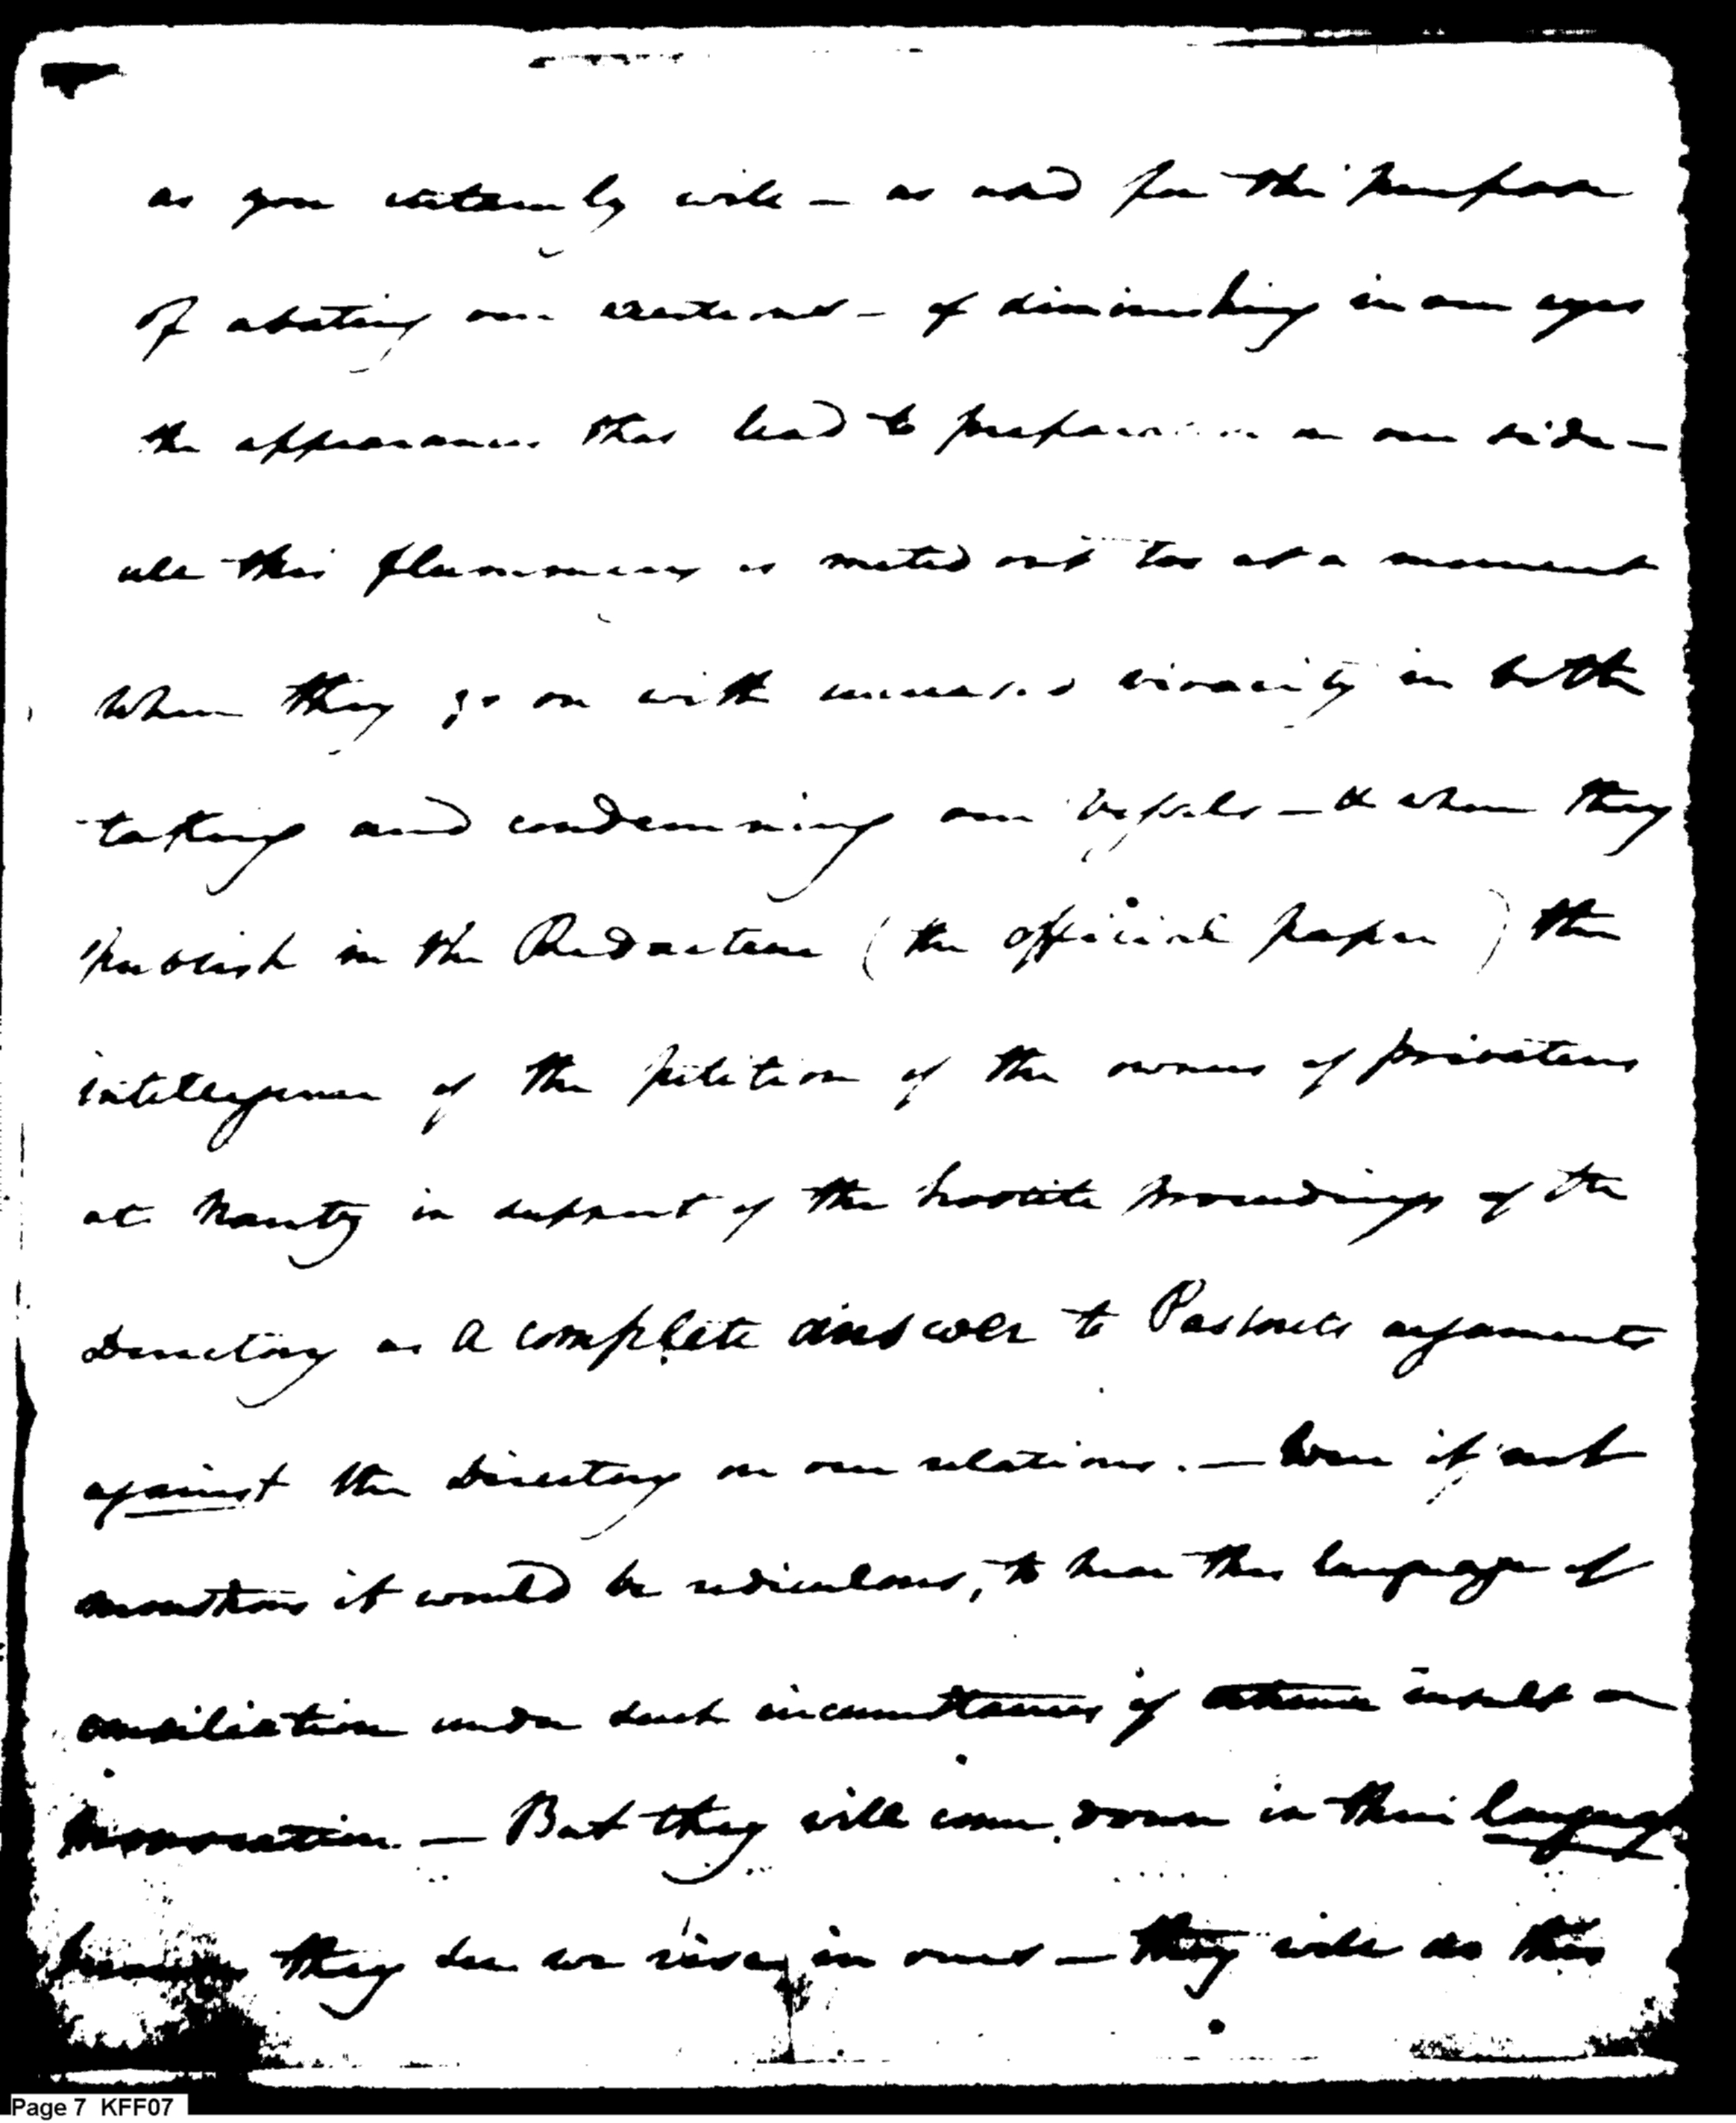 as you certainly will — as and for the purpose
of abating our exertions — of diminishing in our eyes
the appearances that lead to preparation on our side —
all this flummery is meted out too at a moment
when they go on with increased vivacity in both
taking and condemning our vessels — & when they
publish in the Redacteur (the official paper) the
intelligence of the petition of the owners of privateers
at Nantz in support of the hostile proceedings of the
directory as a complete answer to Pastorets arguments
against the directory on our relations. — Were it not
it would be ridiculous, to hear this language of
conciliation under such circumstances of extreme insult &
— But they will come down in their language
because they see we rise in ours — they will do this
Page 7 KFF07